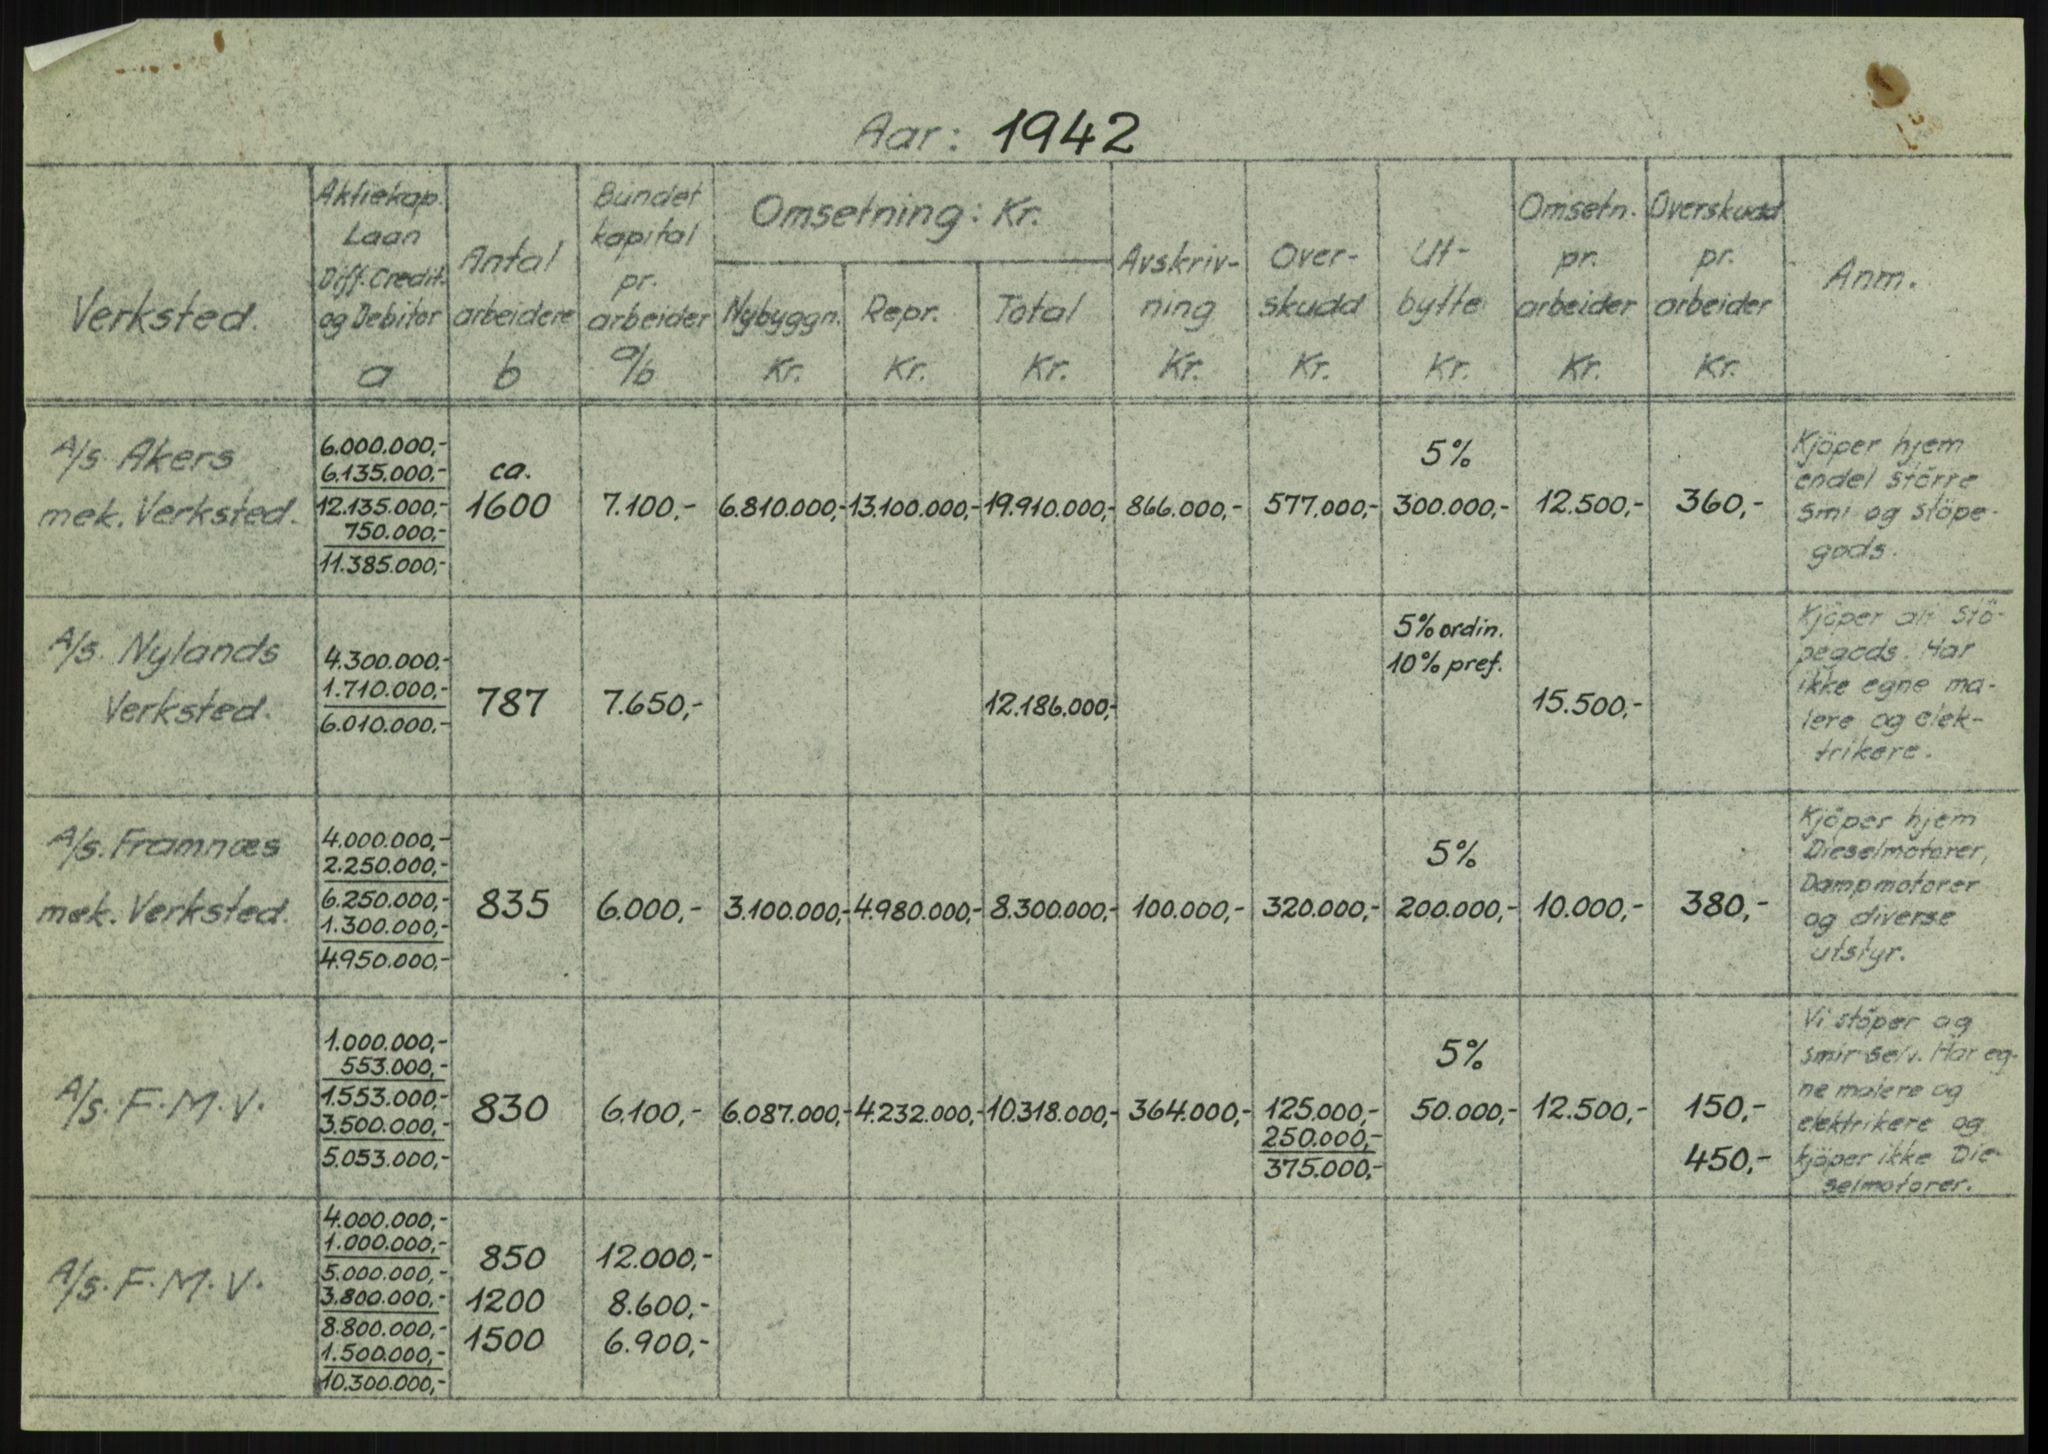 Aar: 1942
Verksted.
Aktiekap.
Laan
Diff. Credit.
og Debitor
a
Antal
arbeidere
b
Bundet
kapital
pr.
arbeider
a/b
Omsetning: Kr.
Nybyggn.
Kr.
Repr.
Kr.
Total
Kr.
Avskriv-
ning
Kr.
Over-
skudd
Kr.
Ut-
bytte
Kr.
Omsetn.
pr.
arbeider
Kr.
Overskudd
pr.
arbeider
Kr.
Anm.
A/s. Akers
mek. Verksted.
6.000.000,-
6.135.000,-
12.135.000,-
750.000,-
11.385.000,-
ca.
1600
7.100,-
6.810.000,-
13.100.000,-
19.910.000,-
866.000,-
577.000,-
5%
300.000,-
12.500,-
360,-
Kjöper hjem
endel större
smi og stöpe-
gods.
A/s. Nylands
Verksted.
4.300.000,-
1.710.000,-
6.010.000,-
787
7.650,-
12.186.000,-
5% ordin.
10% pref.
15.500,-
Kjöper alt stö-
pegods. Har
ikke egne ma-
lere og elek-
trikere.
A/s. Framnæs
mek. Verksted.
4.000.000,-
2.250.000,-
6.250.000,-
1.300.000,-
4.950.000,-
835
6.000,-
3.100.000,-
4.980.000,-
8.300.000,-
100.000,-
320.000,-
5%
200.000,-
10.000,-
380,-
Kjöper hjem
Dieselmotorer,
Dampmotorer
og diverse
utstyr.
A/s. F. M. V.
1.000.000,-
553.000,-
1.553.000,-
3.500.000,-
5.053.000,-
830
6.100,-
6.087.000,-
4.232.000,-
10.318.000,-
364.000,-
125.000,-
250.000,-
375.000,-
5%
50.000,-
12.500,-
150,-
450,-
Vi stöper og
smir selv. Har eg-
ne malere og
elektrikere og
kjöper ikke Die-
selmotorer.
A/s. F. M. V.
4.000.000,-
1.000.000,-
5.000.000,-
3.800.000,-
8.800.000,-
1.500.000,-
10.300.000,-
850
1200
1500
12.000,-
8.600,-
6.900,-